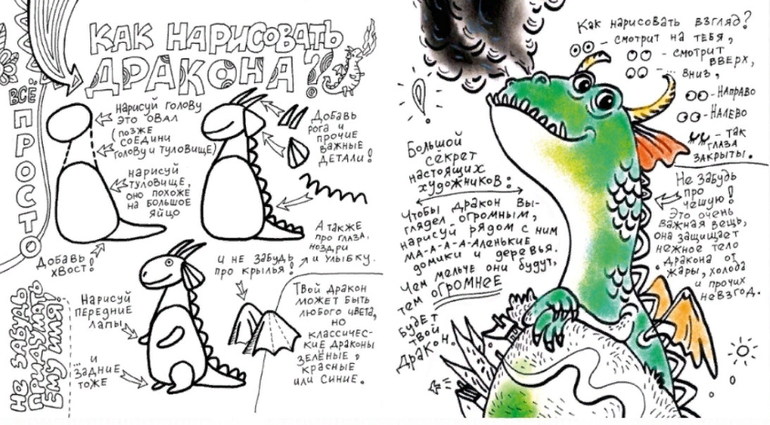 КАК НАРИСОВАТЬ
ДРАКОНА?
ВСЁ
ПРОСТО
НАРИСУЙ ГОЛОВУ
ЭТО ОВАЛ
(ПОЗЖЕ
СОЕДИНИ
ГОЛОВУ И ТУЛОВИЩЕ)
НАРИСУЙ
ТУЛОВИЩЕ,
ОНО ПОХОЖЕ
НА БОЛЬШОЕ
ЯЙЦО
ДОБАВЬ
ХВОСТ!
ДОБАВЬ
РОГА И
ПРОЧИЕ
ВАЖНЫЕ
ДЕТАЛИ!
А ТАКЖЕ
ПРО ГЛАЗА,
НОЗДРИ
И УЛЫБКУ.
И НЕ ЗАБУДЬ
ПРО КРЫЛЬЯ!
НЕ ЗАБУДЬ
ПРИДУМАТЬ
ЕМУ ИМЯ!
НАРИСУЙ
ПЕРЕДНИЕ
ЛАПЫ,
...И
ЗАДНИЕ
ТОЖЕ
ТВОЙ ДРАКОН
МОЖЕТ БЫТЬ
ЛЮБОГО ЦВЕТА,
НО
КЛАССИЧЕС-
КИЕ ДРАКОНЫ
ЗЕЛЁНЫЕ,
КРАСНЫЕ
ИЛИ СИНИЕ.
КАК НАРИСОВАТЬ ВЗГЛЯД?
- СМОТРИТ НА ТЕБЯ,
- СМОТРИТ
ВВЕРХ,
ВНИЗ,
- НАПРАВО
- НАЛЕВО
- ТАК
ГЛАЗА
ЗАКРЫТЫ.
БОЛЬШОЙ
СЕКРЕТ
НАСТОЯЩИХ
ХУДОЖНИКОВ:
ЧТОБЫ ДРАКОН ВЫ-
ГЛЯДЕЛ ОГРОМНЫМ,
НАРИСУЙ РЯДОМ С НИМ
МА-А-А-АЛЕНЬКИЕ
ДОМИКИ И ДЕРЕВЬЯ.
ЧЕМ МЕЛЬЧЕ ОНИ БУДУТ,
ТЕМ ОГРОМНЕЕ
БУДЕТ
ТВОЙ
ДРАКОН.
НЕ ЗАБУДЬ
ПРО
ЧЕШУЮ!
ЭТО ОЧЕНЬ
ВАЖНАЯ ВЕЩЬ,
ОНА ЗАЩИЩАЕТ
НЕЖНОЕ ТЕЛО
ДРАКОНА ОТ
ЖАРЫ, ХОЛОДА
И ПРОЧИХ
НЕВЗГОД.